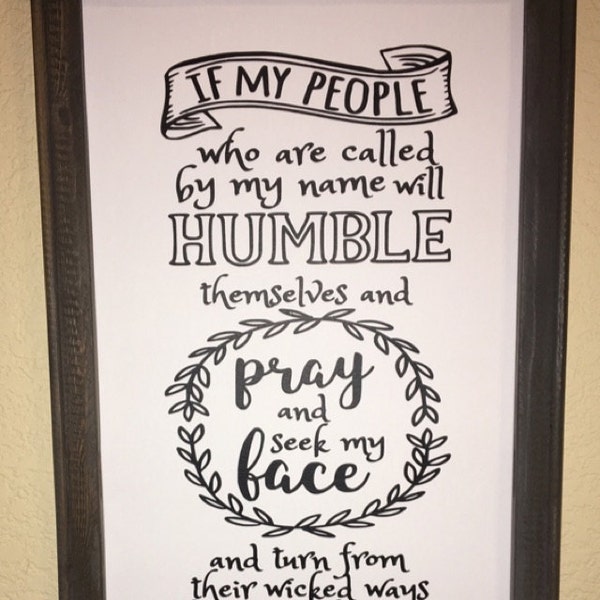 IF MY PEOPLE
who are called
by my name will
HUMBLE
themselves and
pray
and
seek my
face
and turn from
their wicked ways